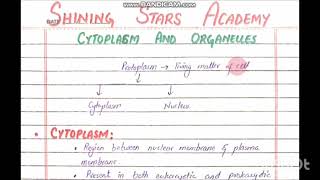 WWW.BANDICAM.COM
SHINING STARS ACADEMY
CYTOPLASM AND ORGANELLES
Protoplasm → living matter of cell
Cytoplasm Nucleus
• CYTOPLASM:
• Region between nuclear membrane & plasma
membrane.
• Present in both eukaryotic and prokaryotic